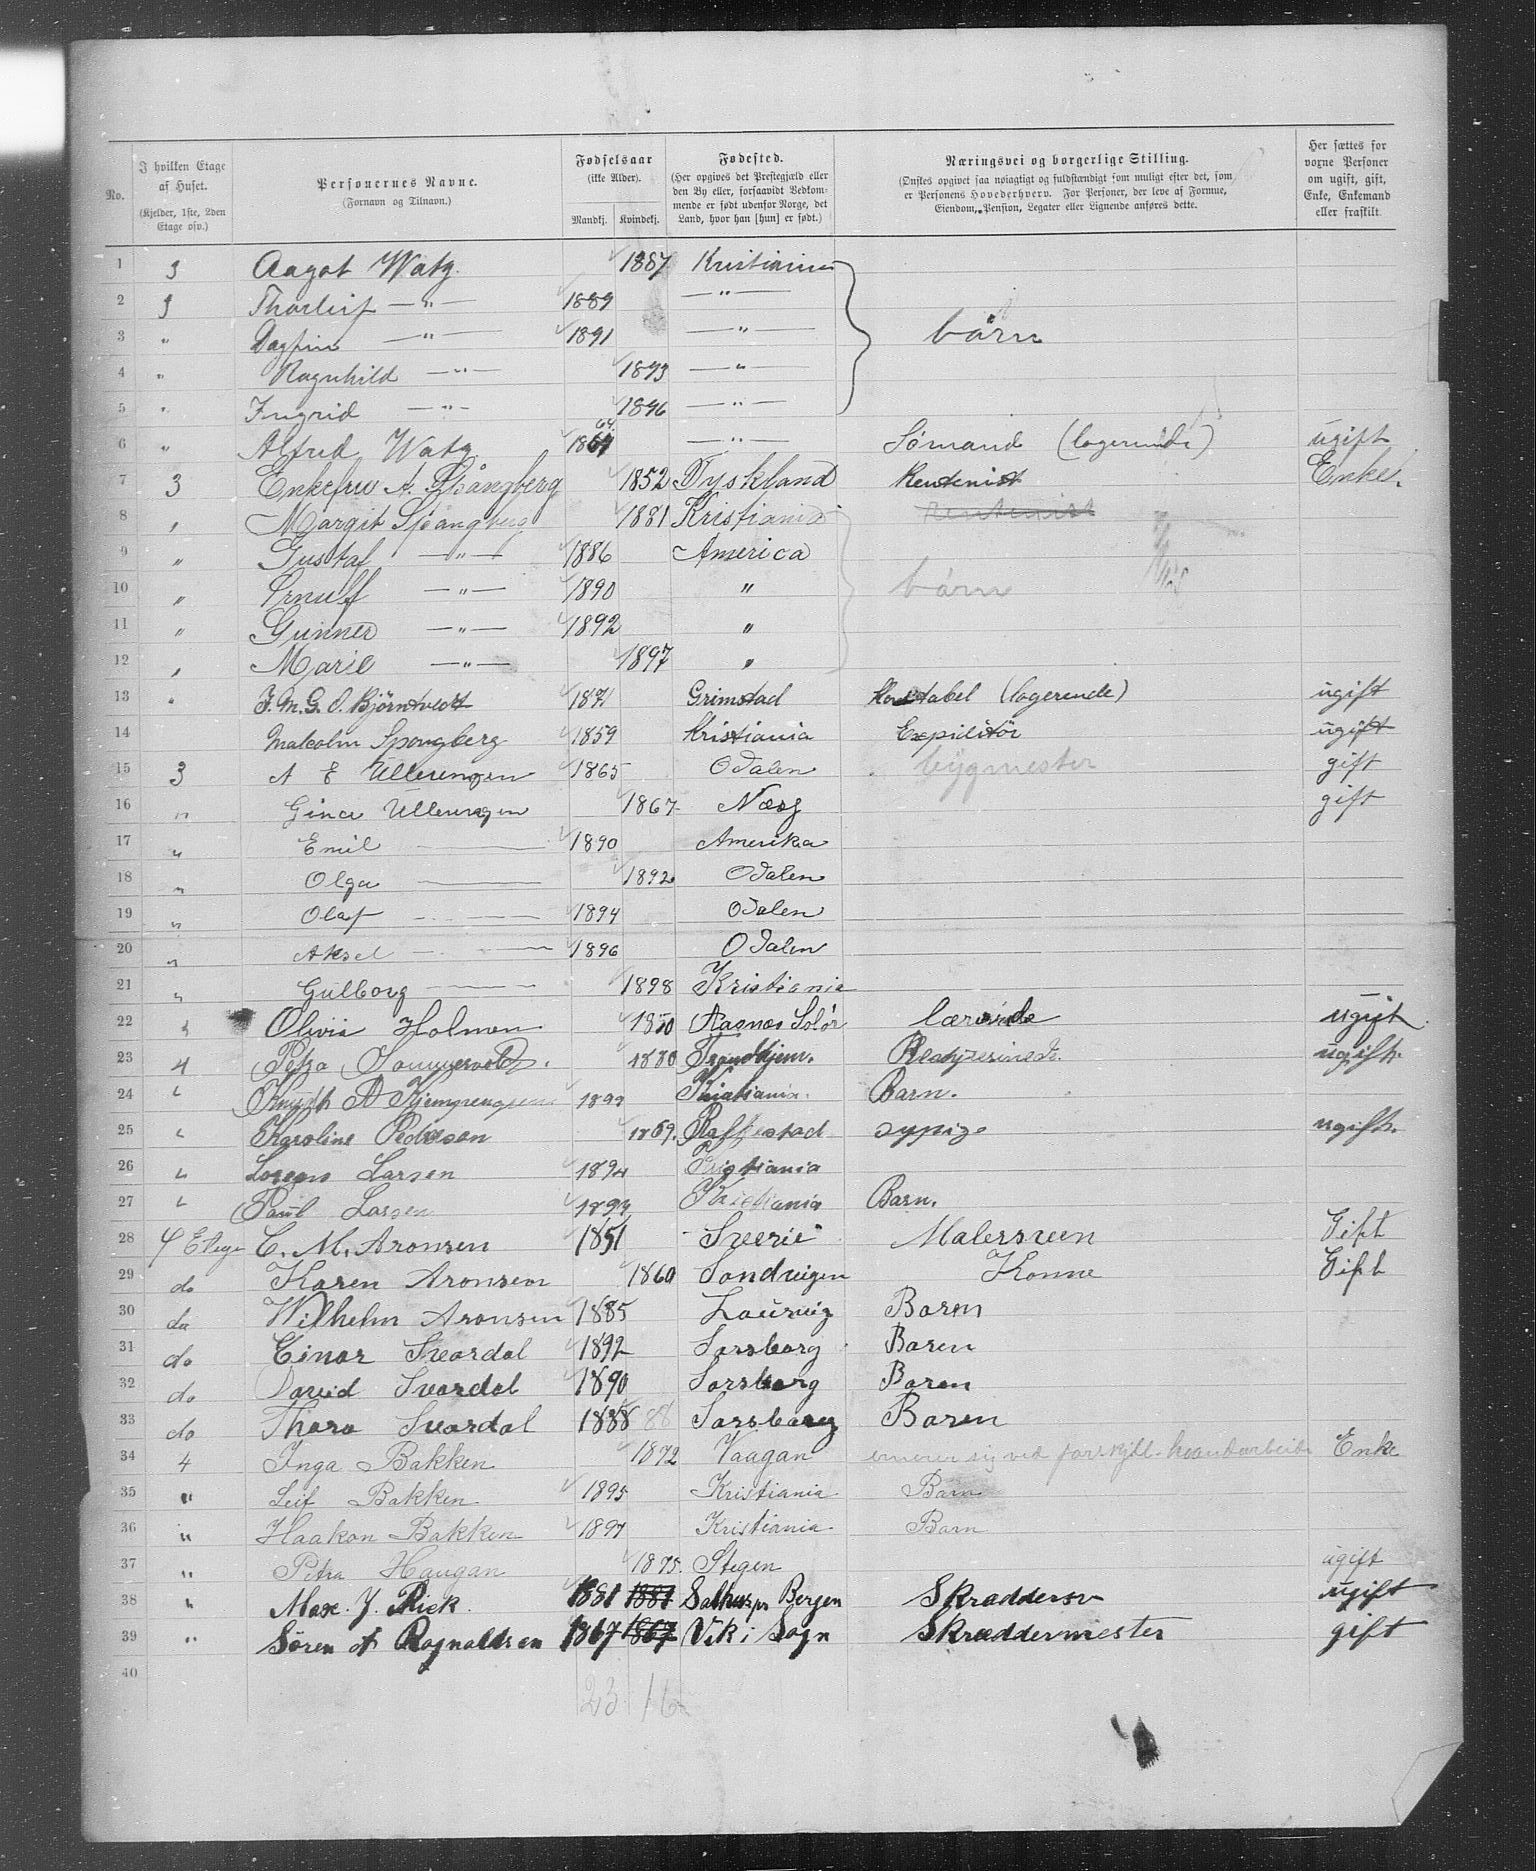 No. | I hvilken Etage af Huset. (Kjelder, 1ste, 2den Etage osv.) | Personernes Navne. (Fornavn og Tilnavn.) | Fødselsaar (ikke Alder). Mandkj. | Kvindekj. | Fødested. (Her opgives det Prestegjæld eller den By eller, forsaavidt Vedkommende er født udenfor Norge, det Land, hvor han [hun] er født.) | Næringsvei og borgerlige Stilling. (Ønskes opgivet saa nøiagtigt og fuldstændigt som muligt efter det, som er Personens Hovederhverv. For Personer, der leve af Formue, Eiendom, Pension, Legater eller Lignende anføres dette. | Her sættes for voxne Personer om ugift, gift, Enke, Enkemand eller fraskilt.
1 3 Aagot Watz 1887 Kristiania
2 3 Thorleif —"— 1889 —"—
3 " Dagfin —"— 1891 —"— børn
4 " Ragnhild —"— 1893 —"—
5 " Ingrid —"— 1896 —"—
6 " Alfred Watz 64 —"— Sømand (logerende) ugift
7 3 Enkefru A. Spångberg 1852 Tyskland Rentenist Enke.
8 " Margit Spångberg 1881 Kristiania rentenist
9 " Gustaf —"— 1886 America
10 " Ernulf —"— 1890 " børn
11 " Gunner —"— 1892 "
12 " Marie —"— 1897 "
13 " J. M. G. O. Bjørntvedt 1871 Grimstad Konstabel (logerende) ugift
14 Malcolm Spongberg 1859 Kristiania Expiditør ugift
15 3 A E Ullerengen 1865 Odalen bygmester gift
16 " Gina Ullerengen 1867 Næss gift
17 " Emil — 1890 Amerika
18 " Olga — 1892 Odalen
19 " Olaf — 1894 Odalen
20 " Aksel — 1896 Odalen
21 " Gulborg — 1898 Kristiania
22 " Olivia Holmen 1850 Aasnes Solør lærerinde ugift
23 4 Petra 1880 Trondhjem. ugift.
24 " 1899 Kristiania. Barn.
25 " Karoline Pedersen 1869. sypige ugift.
26 " Larsen 1894 Kristiania
27 " Paul Larsen 1893 Kristiania Barn.
28 4 Etage C. M. Aronsen 1851 Sverie Malersveen Gift
29 do Karen Aronsen 1860 Sandvigen Konne Gift
30 do Wilhelm Aronsen 1885 Laurvig Baren
31 do Einar Svardal 1892 Sarsborg Baren
32 do David Svardal 1890 Sarsborg Baren
33 do Thora Svardal 1888 88 Sarsborg Baren
34 4 Inga Bakken 1872 Vaagan ernærer sig ved forskjell. haandarbeide Enke
35 " Leif Bakken 1895 Kristiania Barn
36 " Haakon Bakken 1897 Kristiania Barn
37 " Petra Haugan 1875. Stegen ugift
38 " Max. J. Rick. 1881 1881 Bergen Skræddersv ugift
39 " Søren A Ragnaldsen 1867 1867 Vik i Sogn Skræddermester gift
40
23 16